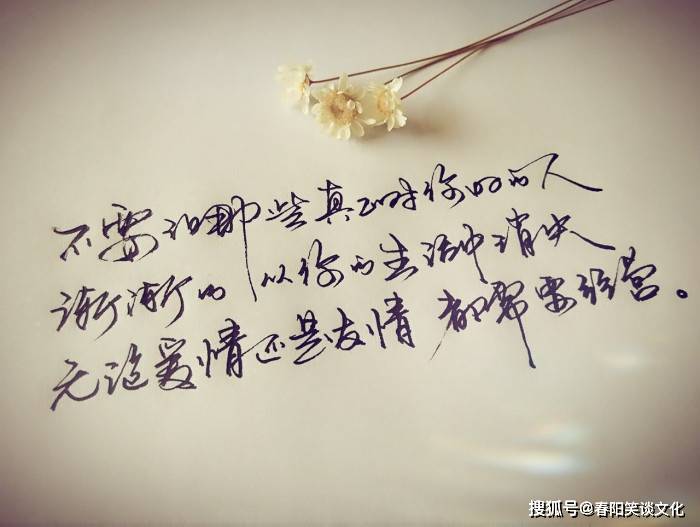 不要让那些真正对你好的人
渐渐的从你的生活中消失
无论爱情还是友情 都需要经营。
搜狐号@春阳笑谈文化